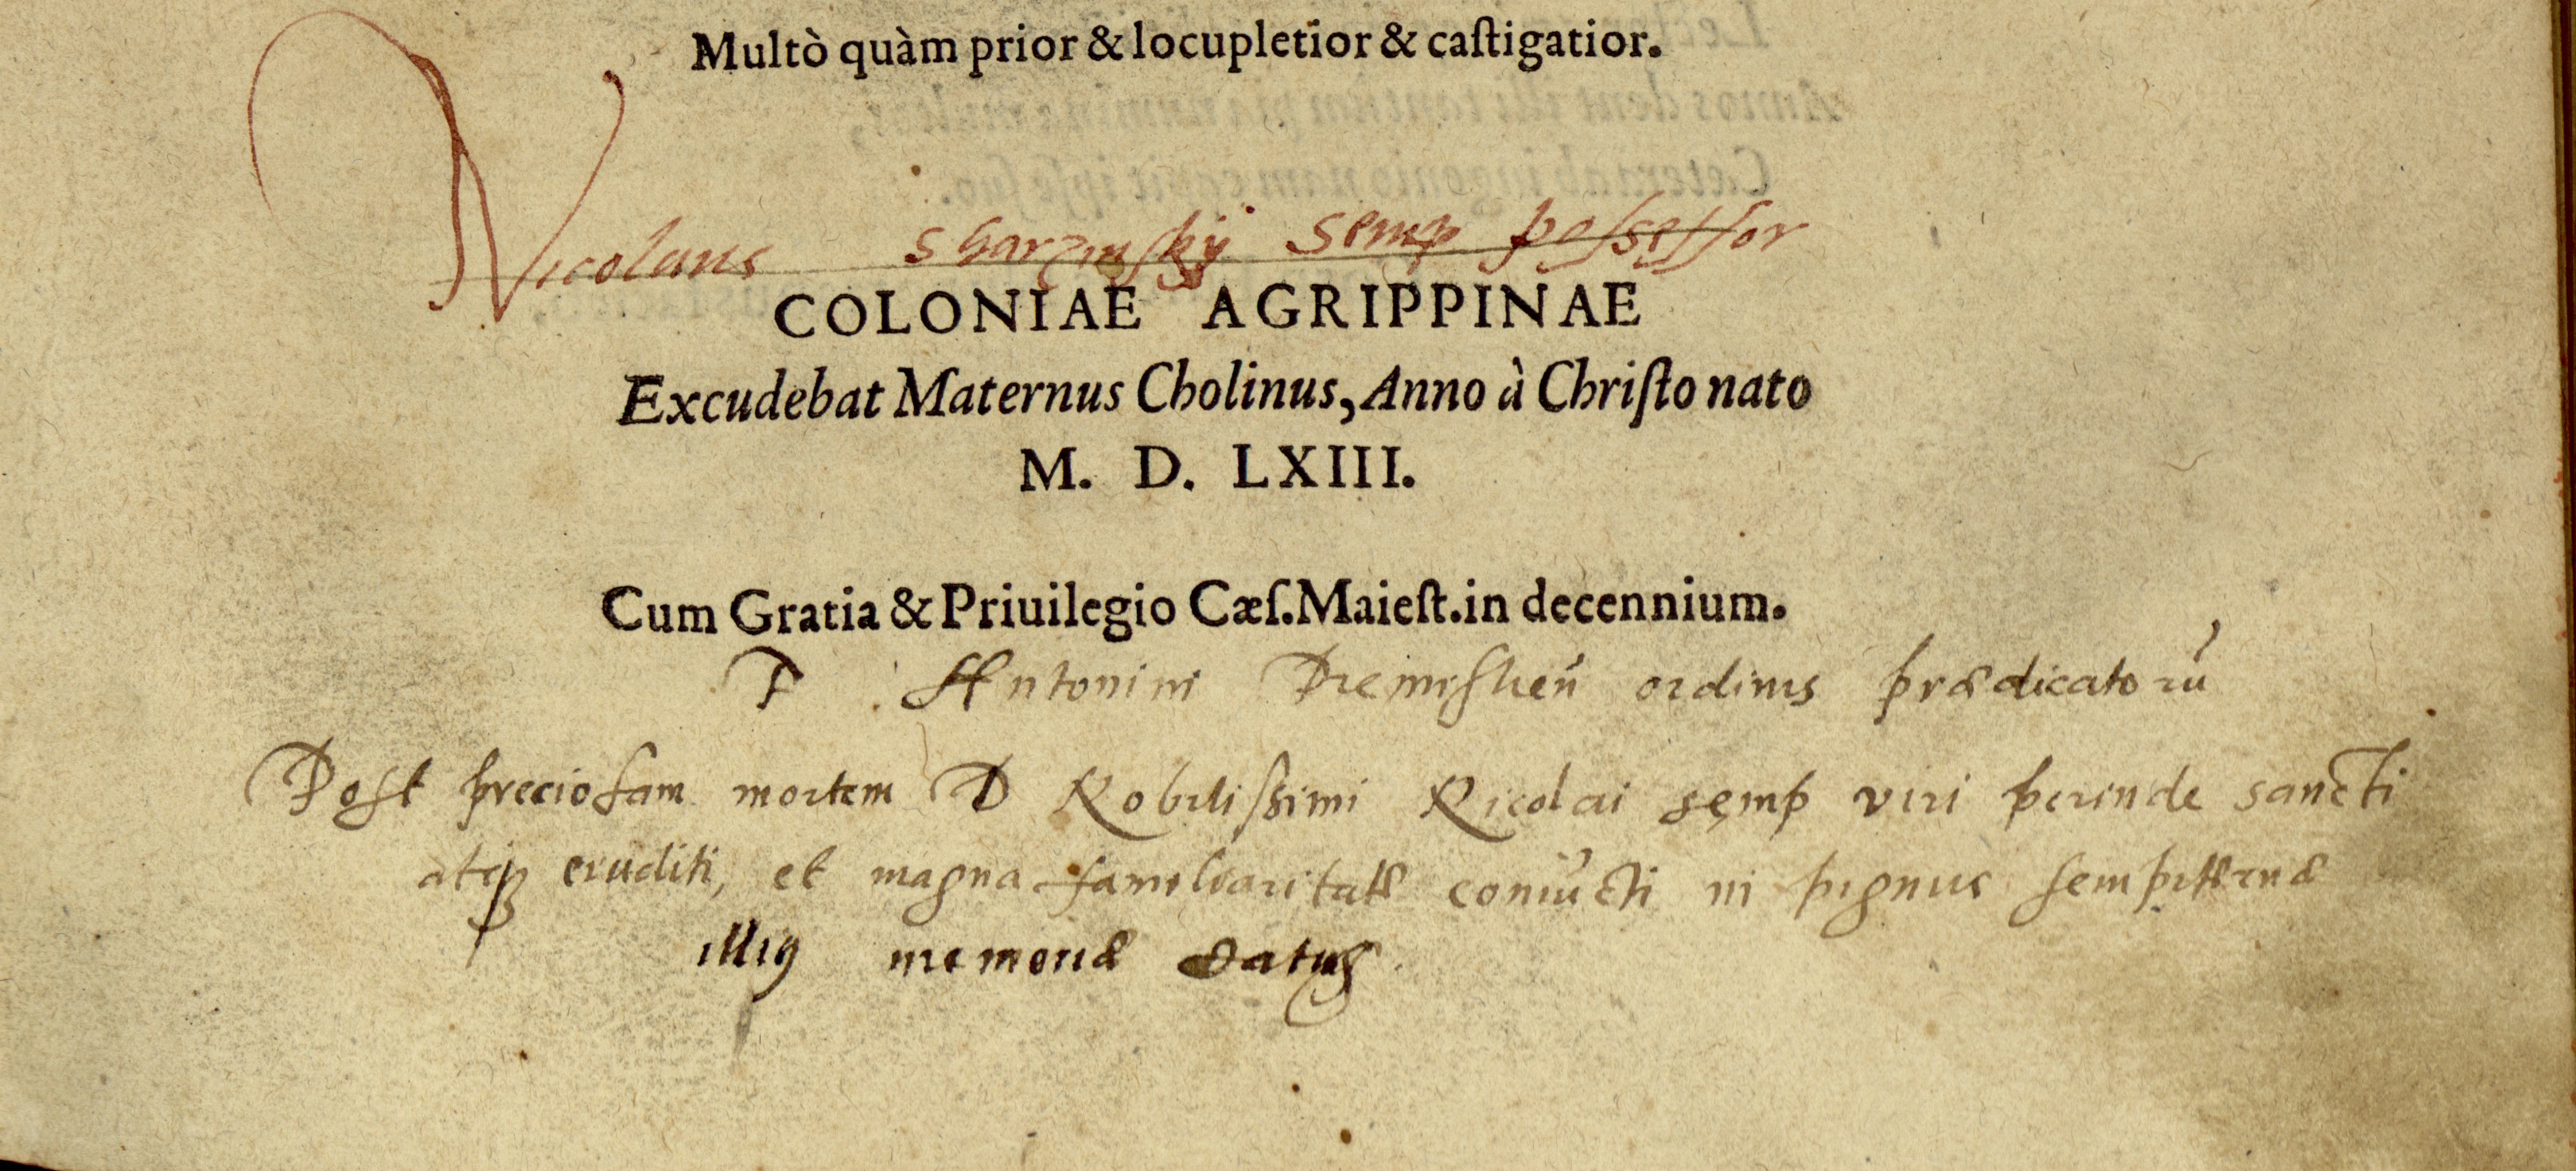 Multò quàm prior & locupletior & caſtigatior.
Nicolaus Semp poſseſſor
COLONIAE AGRIPPINAE
Excudebat Maternus Cholinus, Anno à Chriſto nato
M. D. LXIII.
Cum Gratia & Priuilegio Cæſ. Maieſt. in decennium.
F Antonini ordinis prædicatorū
Poſt precioſam mortem D Nobiliſsimi Nicolai semp viri perinde sancti
atq eruditi, et magna familiaritatæ coniūcti in pignus ſempiternæ
illiꝰ memoriæ datus